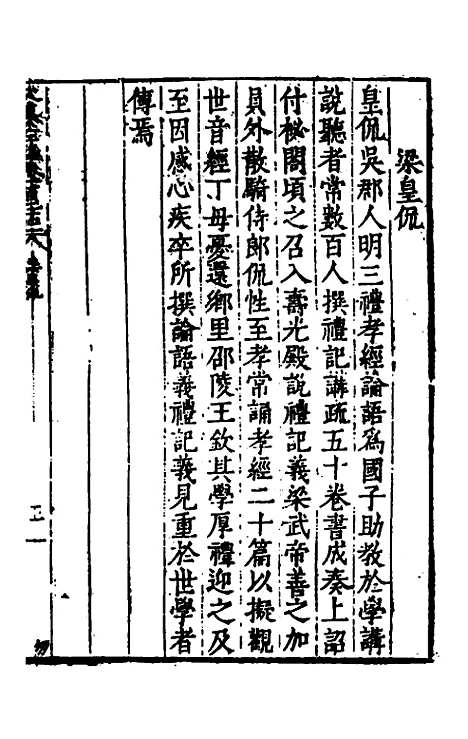 梁皇侃
皇侃吳郡人明三禮孝經論語爲國子助敎於學講
說聽者常數百人撰禮記講疏五十卷書成奏上詔
付秘閣頃之召入壽光殿說禮記義梁武帝善之加
員外散騎侍郎侃性至孝常誦孝經二十篇以擬觀
世音經丁母憂還鄉里邵陵王欽其學厚禮迎之及
至因感心疾卒所撰論語義禮記義見重於世學者
傳焉